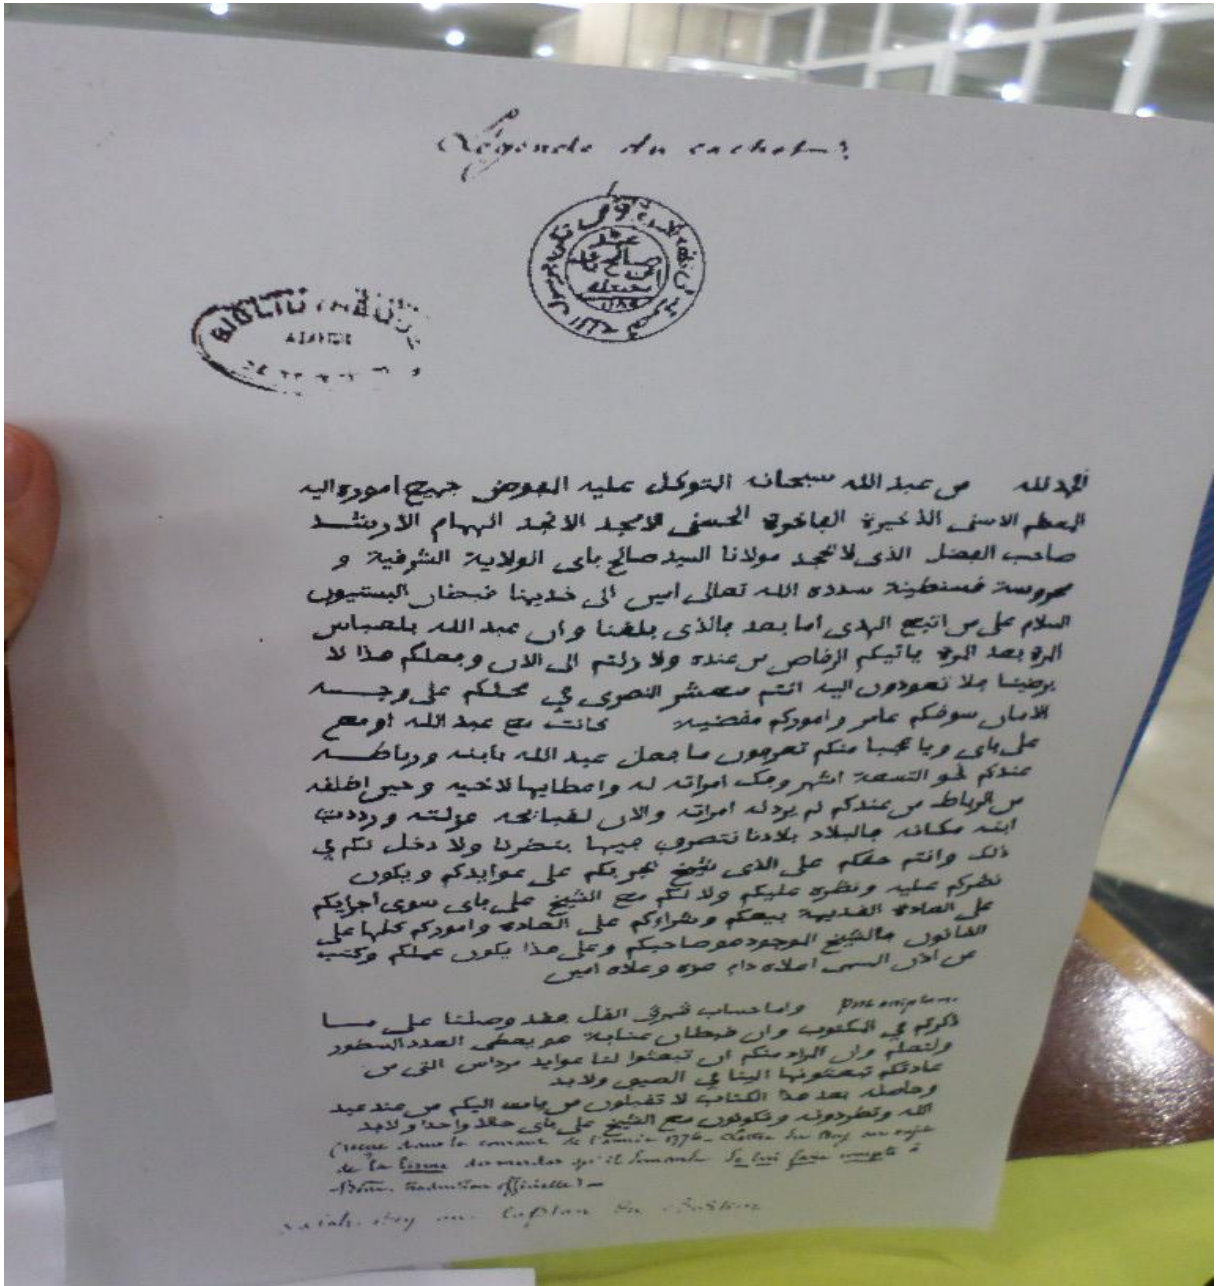 Légende du cachet :
عبده صالح باي
١١٨٥
BIBLIOTHÈQUE
ALGER
الحمد لله من عبد الله سبحانه المتوكل عليه المفوض جميع اموره اليه
المعظم الاسنى الذخيرة الفاخرة الحسنى الامجد الانجد الهمام الارشد
صاحب الفضل الذى لا يجحد مولانا السيد صالح باى الولاية الشرفية و
محروسة قسنطينة سدده الله تعالى امين الى خديمنا قبطان البستيون
السلام على من اتبع الهدى اما بعد فالذى بلغنا وان عبد الله بلعباس
المرة بعد المرة ياتيكم الرقاص من عنده ولا زلتم الى الان وفعلكم هذا لا
يرضينا فلا تعودون اليه انتم معشر النصرى في محلكم على وجه
الامان سوقكم عامر واموركم مقضية كانت مع عبد الله او مع
على باى ويا عجبا منكم تعرفون ما فعل عبد الله بابنه ورباطه
عندكم نحو التسعة اشهر وفك امراته له واعطايها لاخيه وحين اطلقه
من الرباط من عندكم لم يرد له امراته والان لقبائحه عزلته ورددت
ابنه مكانه فالبلاد بلادنا نتصرف فيها بنظرنا ولا دخل لكم في
ذلك وانتم حقكم على الذى شيخ نجريكم على عوايدكم ويكون
نظركم عليه ونظره عليكم ولا لكم مع الشيخ على باى سوى اجرايكم
على العادة القديمة بيعكم وشراءكم على العادة واموركم كلها على
القانون فالشيخ الموجود هو صاحبكم وعلى هذا يكون عملكم وكتب
عن اذن المسمى اعلاه دام عزه وعلاه امين
Post scriptum. واما حساب شهرى الفل فقد وصلنا على مـا
ذكركم في المكتوب وان قبطان عنابة هو يعطى العدد المسطور
ولتعلم وان المراد منكم ان تبعثوا لنا عوايد مرداس التى من
عادتكم تبعثونها الينا في الصيف ولابد
وحاصله بعد هذا الكتاب لا تقبلون من ياتى اليكم من عند عبد
الله وتطردونه وتكونون مع الشيخ على باى حالا واحدا ولابد
(reçue dans le courant de l'année 1776. Lettre du Bey au sujet
de la lisme des merdas qu'il demande de lui faire compte à
Bône. traduction officielle) —
Salah-bey au Capitan du Bastion